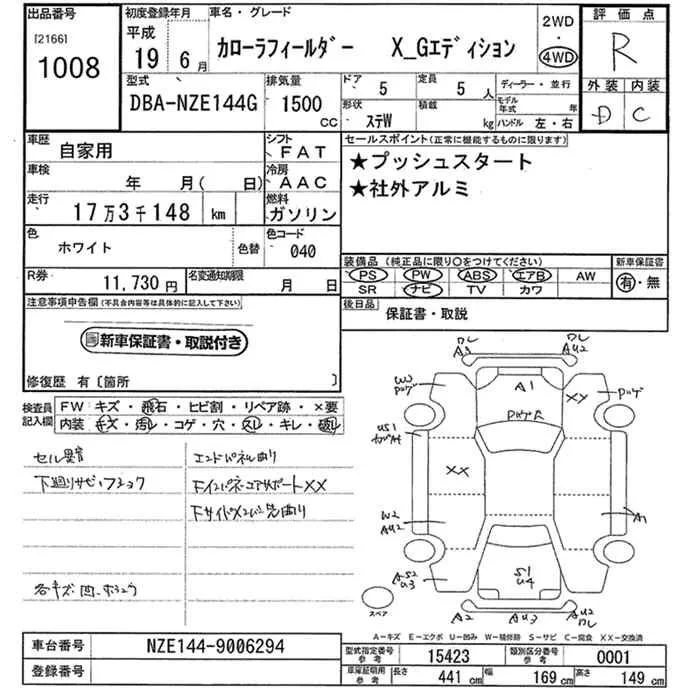 出品番号
[2166]
1008
初度登録年月
平成
19 6月
車名・グレード
カローラフィールダー X_Gエディション
2WD
・
4WD
評価点
R
型式
DBA-NZE144G
排気量
1500
CC
ドア 5
定員 5 人
形状 ステW
積載 kg
ディーラー・並行
モデル年式 年
ハンドル 左・右
外装 内装
D C
車歴
自家用
シフト
FAT
車検
年 月( 日)
冷房
AAC
走行
17万3千148 km
燃料
ガソリン
色
ホワイト
色替
色コード
040
R券
11,730円
名変通知期限
月 日
セールスポイント(正常に機能するものに限ります)
★プッシュスタート
★社外アルミ
装備品(純正品に限り○をつけてください)
新車保証書
PS PW ABS エアB AW
SR ナビ TV カワ
有・無
後日品
保証書・取説
注意事項申告欄(不具合内容等は具体的に記入して下さい)
新車保証書・取説付き
修復歴 有〔箇所 〕
検査員
記入欄
FW キズ・飛石・ヒビ割・リペア跡・×要
内装 キズ・汚レ・コゲ・穴・スレ・キレ・破レ
セル異音
下廻りサビ・フショク
エンドパネル曲り
FインパネエアサポートXX
各キズ凹
A1
XX
XX
W2
AU2
S1
U4
A1
A2
AU3
AU2
スペア
A-キズ E-エクボ U-凹み W-補修跡 S-サビ C-腐食 XX-交換済
車台番号
NZE144-9006294
登録番号
型式指定番号
参考
15423
類別区分番号
参考
0001
車庫証明用
参考
長さ 441 cm
幅 169 cm
高さ 149 cm